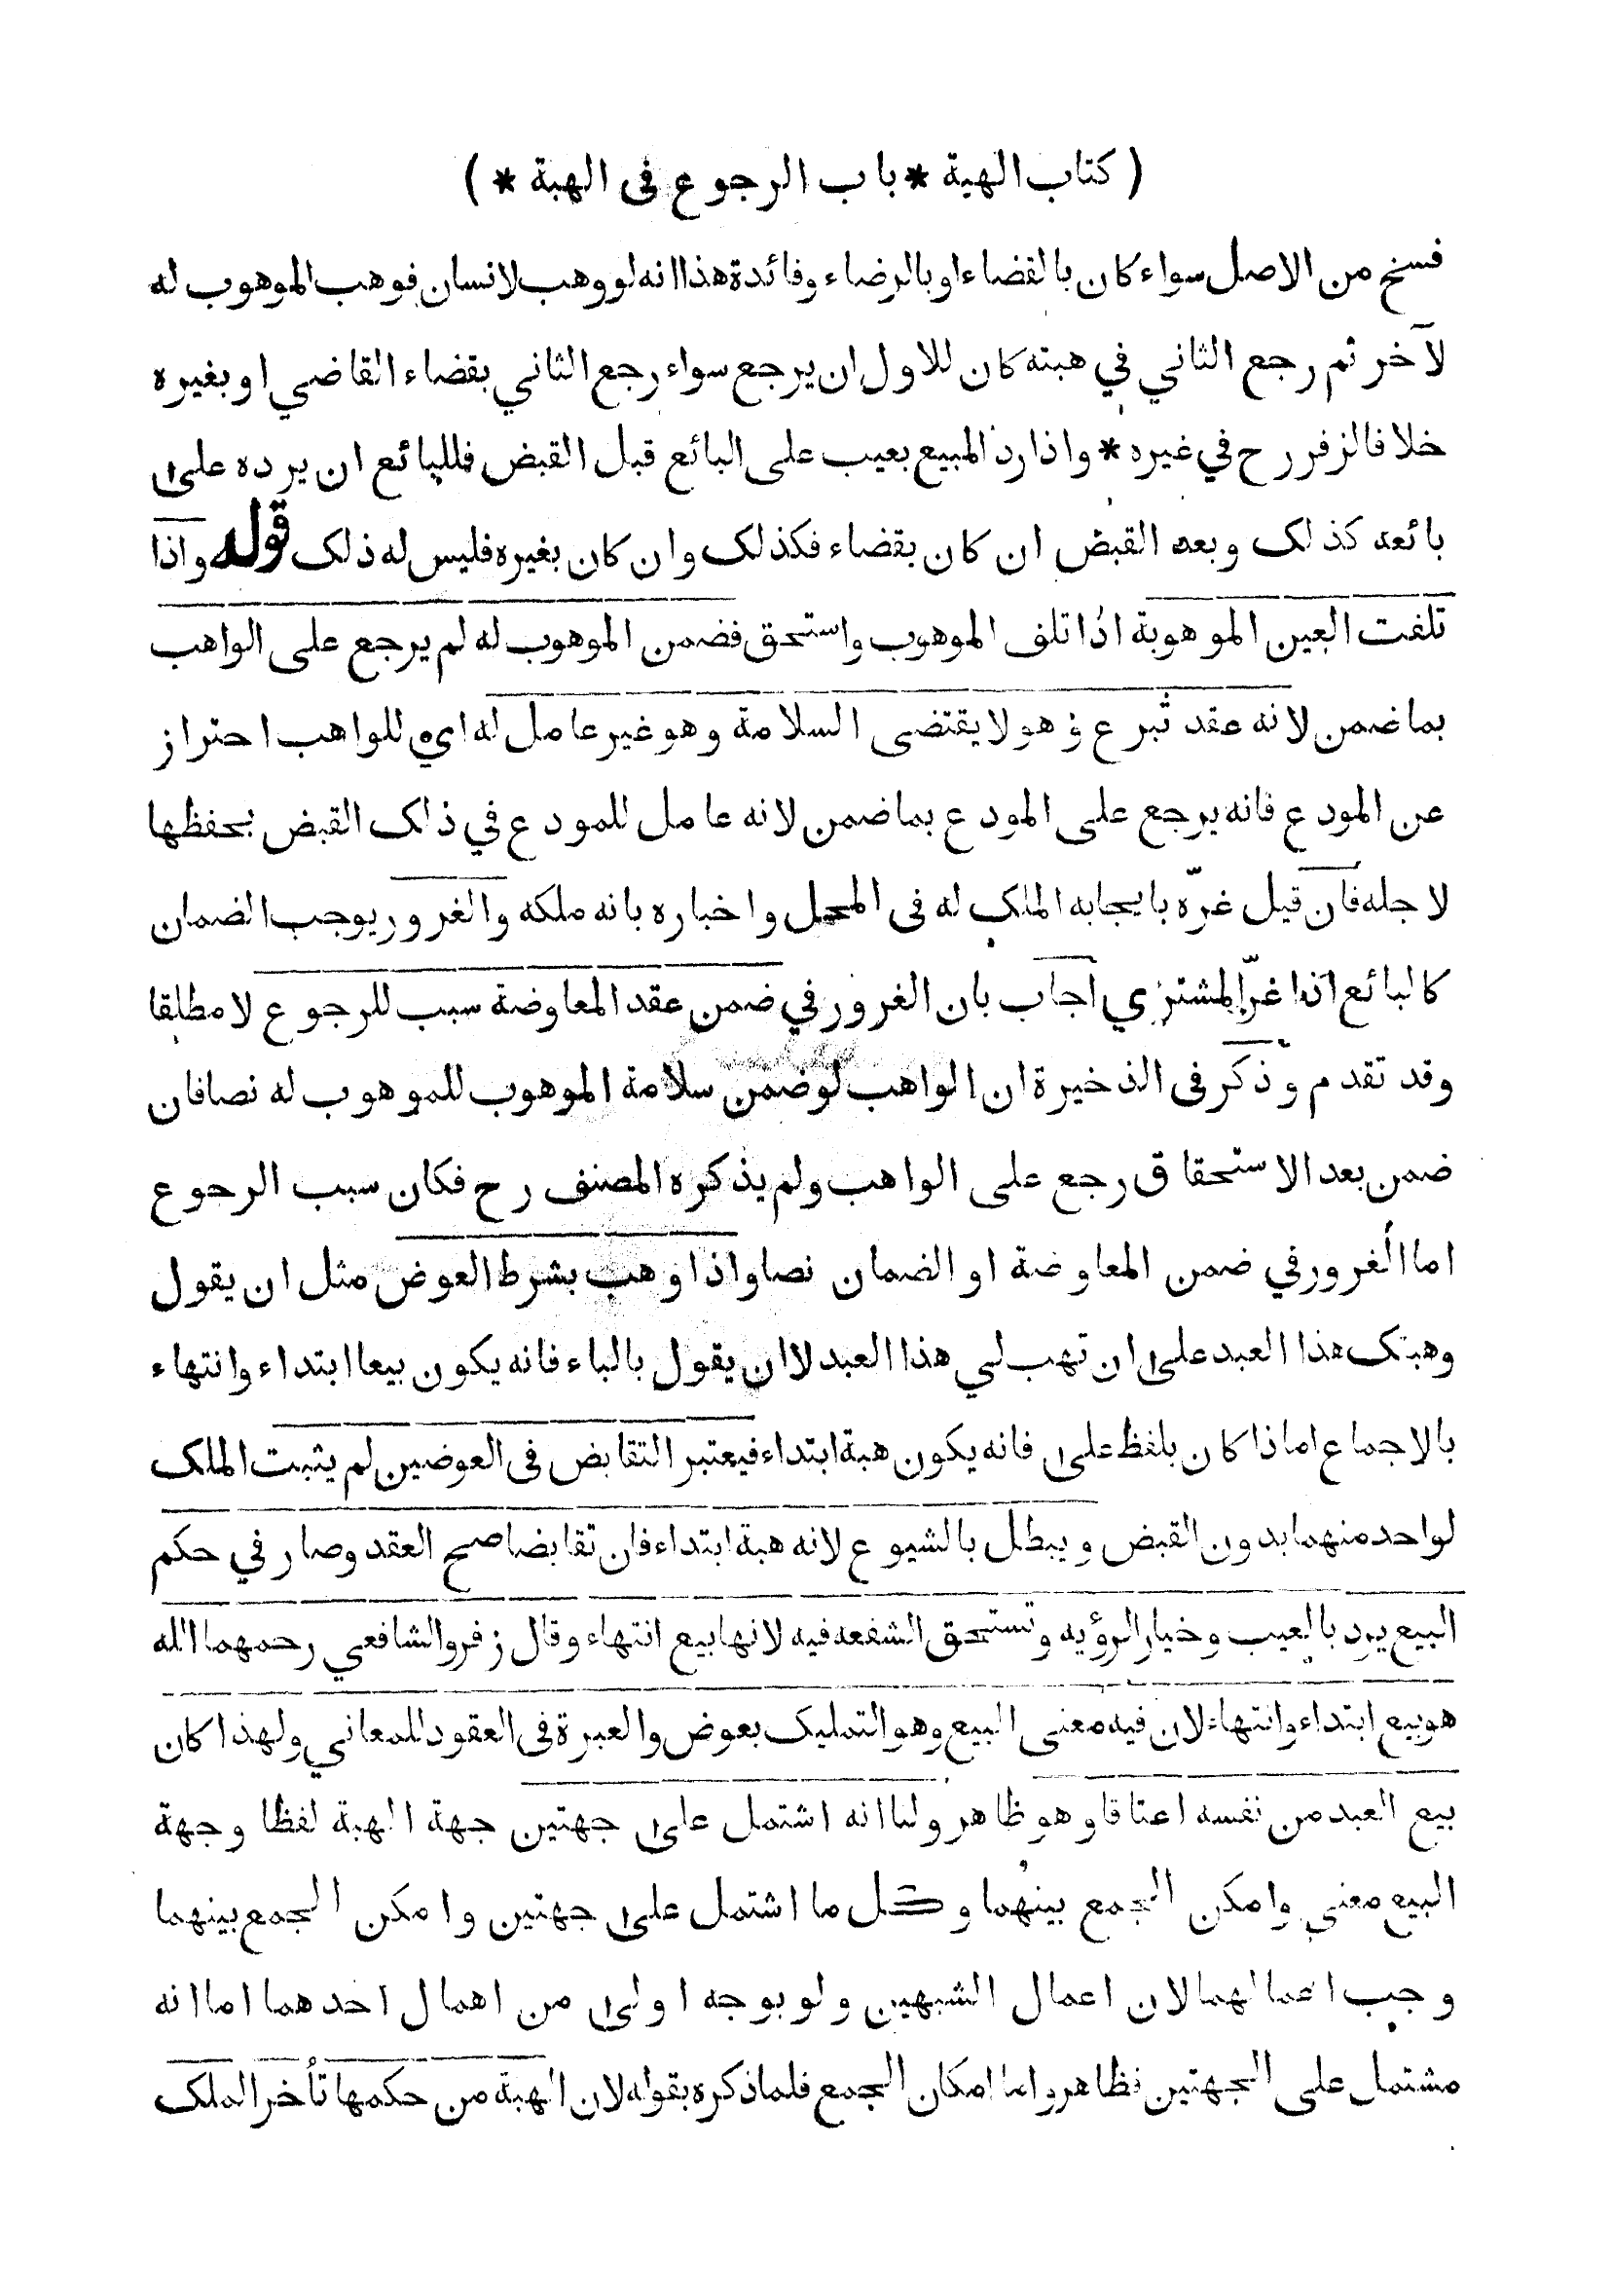 ( كتاب الهبة * باب الرجوع فى الهبة * )
فسخ من الاصل سواء كان بالقضاء او بالرضاء وفائدة هذا انه لو وهب لانسان فوهب الموهوب له
لآخر ثم رجع الثاني في هبته كان للاول ان يرجع سواء رجع الثاني بقضاء القاضي او بغيره
خلافا لزفر رح في غيره * واذا رد المبيع بعيب على البائع قبل القبض فللبائع ان يرده على
بائعه كذلك وبعد القبض ان كان بقضاء فكذلك وان كان بغيره فليس له ذلك قوله واذا
تلفت العين الموهوبة اذا تلف الموهوب واستحق فضمن الموهوب له لم يرجع على الواهب
بما ضمن لانه عقد تبرع وهو لا يقتضى السلامة وهو غير عامل له اي للواهب احتراز
عن المودع فانه يرجع على المودع بما ضمن لانه عامل للمودع في ذلك القبض بحفظها
لاجله فان قيل غرّه بايجابه الملك له فى المحل واخباره بانه ملكه والغرور يوجب الضمان
كالبائع اذا غرّ المشتري اجاب بان الغرور في ضمن عقد المعاوضة سبب للرجوع لا مطلقا
وقد تقدم وذكر فى الذخيرة ان الواهب لو ضمن سلامة الموهوب للموهوب له نصا فان
ضمن بعد الاستحقاق رجع على الواهب ولم يذكره المصنف رح فكان سبب الرجوع
اما الغرور في ضمن المعاوضة او الضمان نصا واذا وهب بشرط العوض مثل ان يقول
وهبتك هذا العبد على ان تهب لي هذا العبد لا ان يقول بالباء فانه يكون بيعا ابتداء وانتهاء
بالاجماع اما اذا كان بلفظ على فانه يكون هبة ابتداء فيعتبر التقابض فى العوضين لم يثبت الملك
لواحد منهما بدون القبض ويبطل بالشيوع لانه هبة ابتداء فان تقابضا صح العقد وصار في حكم
البيع يرد بالعيب وخيار الرؤيه وتستحق الشفعه فيه لانها بيع انتهاء وقال زفر والشافعي رحمهما الله
هو بيع ابتداء وانتهاء لان فيه معنى البيع وهو التمليك بعوض والعبرة فى العقود للمعاني ولهذا كان
بيع العبد من نفسه اعتاقا وهو ظاهر ولنا انه اشتمل على جهتين جهة الهبة لفظا وجهة
البيع معنى وامكن الجمع بينهما وكل ما اشتمل على جهتين وامكن الجمع بينهما
وجب اعمالهما لان اعمال الشبهين ولو بوجه اولى من اهمال احدهما اما انه
مشتمل على الجهتين فظاهر واما امكان الجمع فلما ذكره بقوله لان الهبة من حكمها تأخر الملك